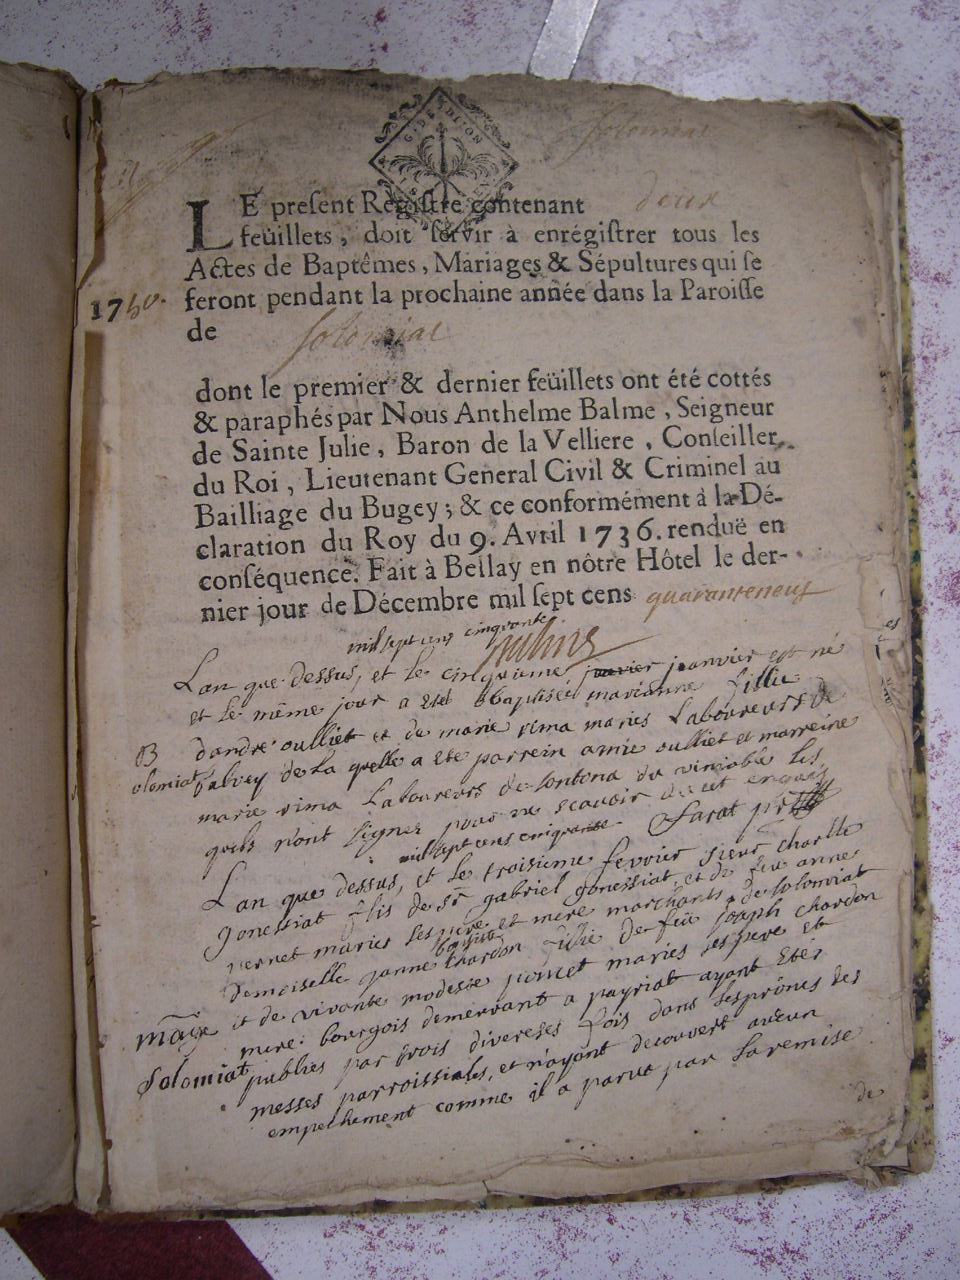 Solomiat
LE present Registre contenant deux
feüillets, doit servir à enrégistrer tous les
Actes de Baptêmes, Mariages & Sépultures qui se
1750. feront pendant la prochaine année dans la Paroisse
de Solomiat
dont le premier & dernier feüillets ont été cottés
& paraphés par Nous Anthelme Balme, Seigneur
de Sainte Julie, Baron de la Velliere, Conseiller
du Roi, Lieutenant General Civil & Criminel au
Bailliage du Bugey; & ce conformément à la Dé-
claration du Roy du 9. Avril 1736. renduë en
conséquence. Fait à Bellay en nôtre Hôtel le der-
nier jour de Décembre mil sept cens quaranteneuf
mil sept cens cinquante
Lan que dessus, et le cinquieme janvier est né
et le même jour a eté baptiseé marianne fillie
B dandré oulliet et de marie rima mariés Laboureurs de
olomiat falvey de la quelle a eté parrein amie oulliet et marreine
marie rima Laboureurs de
quels nont signer pour ne scavoir de cet enquis
mil sept cens cinquante
Lan que dessus, et le troisieme fevrier sieur charlle
gonessiat fils de sr gabriel gonessiat et de feue anne
vernet mariés ses pere et mere marchants de Solomiat
baptiste
Demoiselle janne chardon fillie de feü joseph chardon
mãge et de vivante modeste poncet mariés ses pere et
mere: bourgois demeurant a payriat ayant etés
Solomiat publiés par trois diverses fois dans les prônes des
messes parroissiales, et n'ayant decouvert aucun
empechement comme il a parut par La remise
de